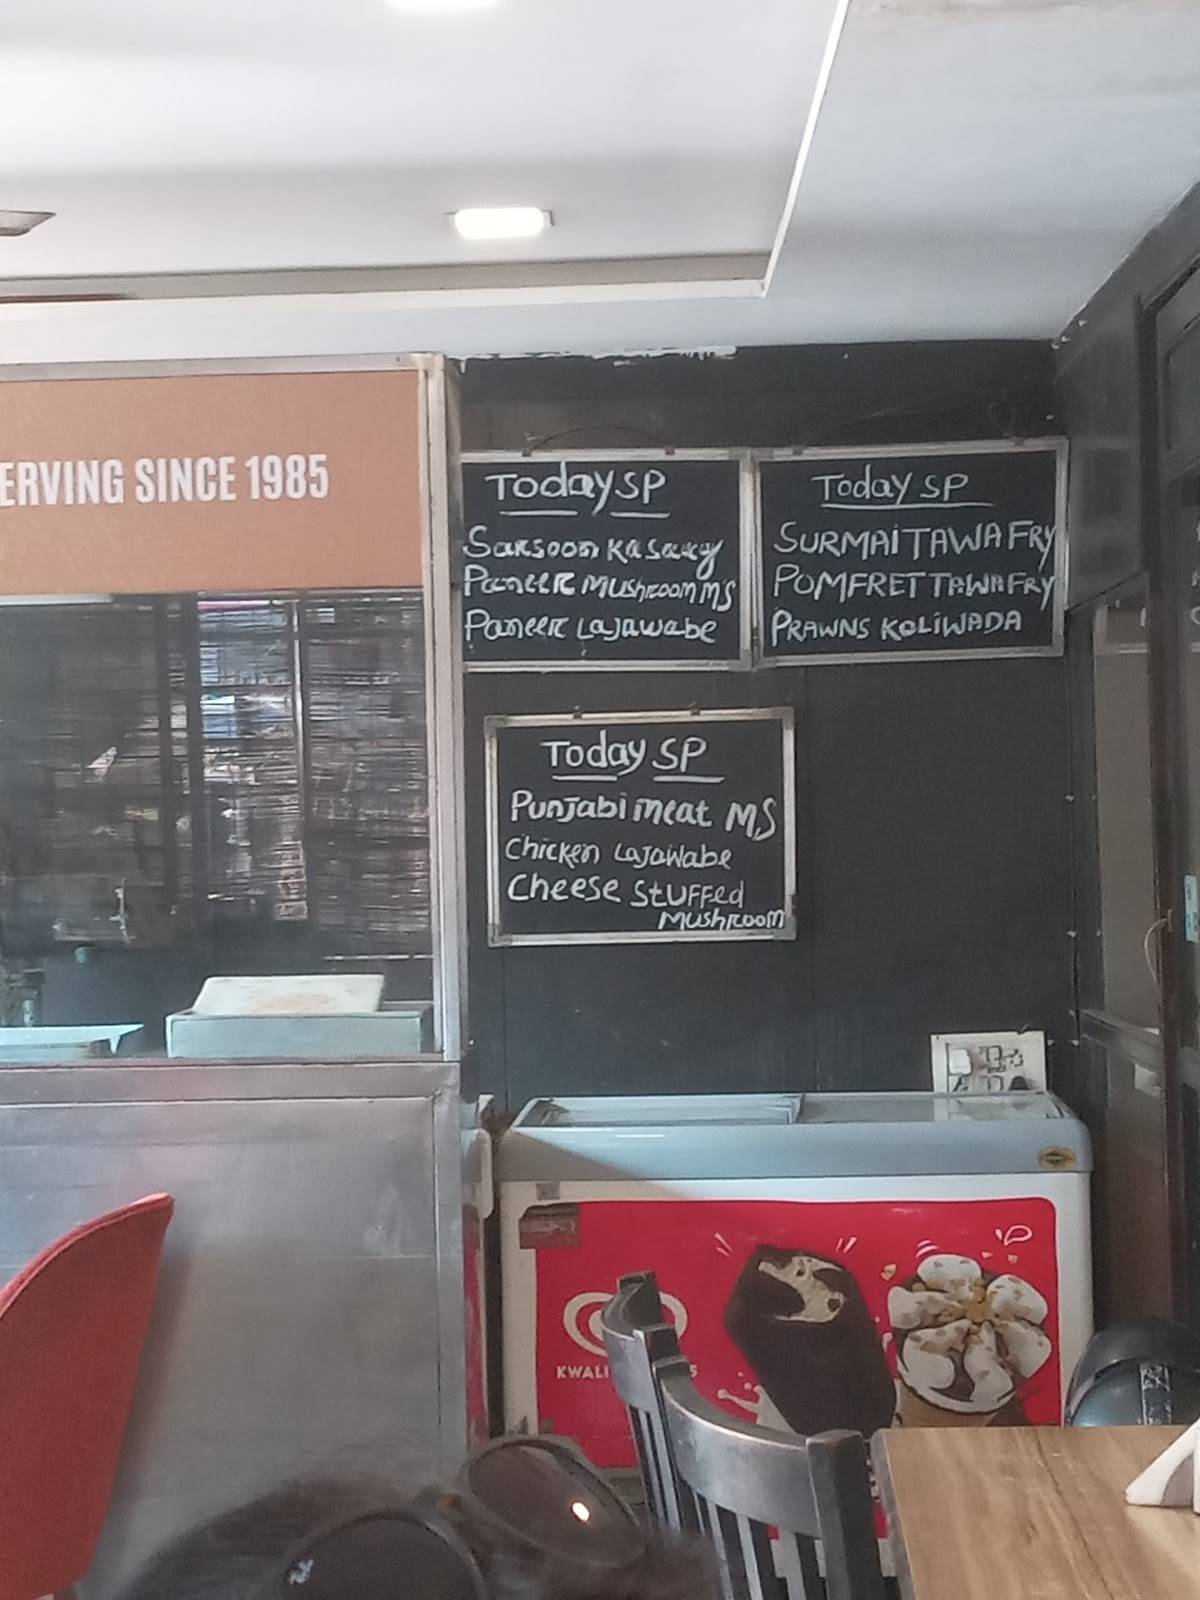 ERVING SINCE 1985
Today SP
Sarsoon Ka Saag
Paneer Mushroom M's
Paneer Lajawabe
Today SP
SURMAI TAWA FRY
POMFRET TAWA FRY
PRAWNS KOLIWADA
Today SP
Punjabi meat M,S
Chicken Lajawabe
Cheese Stuffed
Mushroom
KWALI